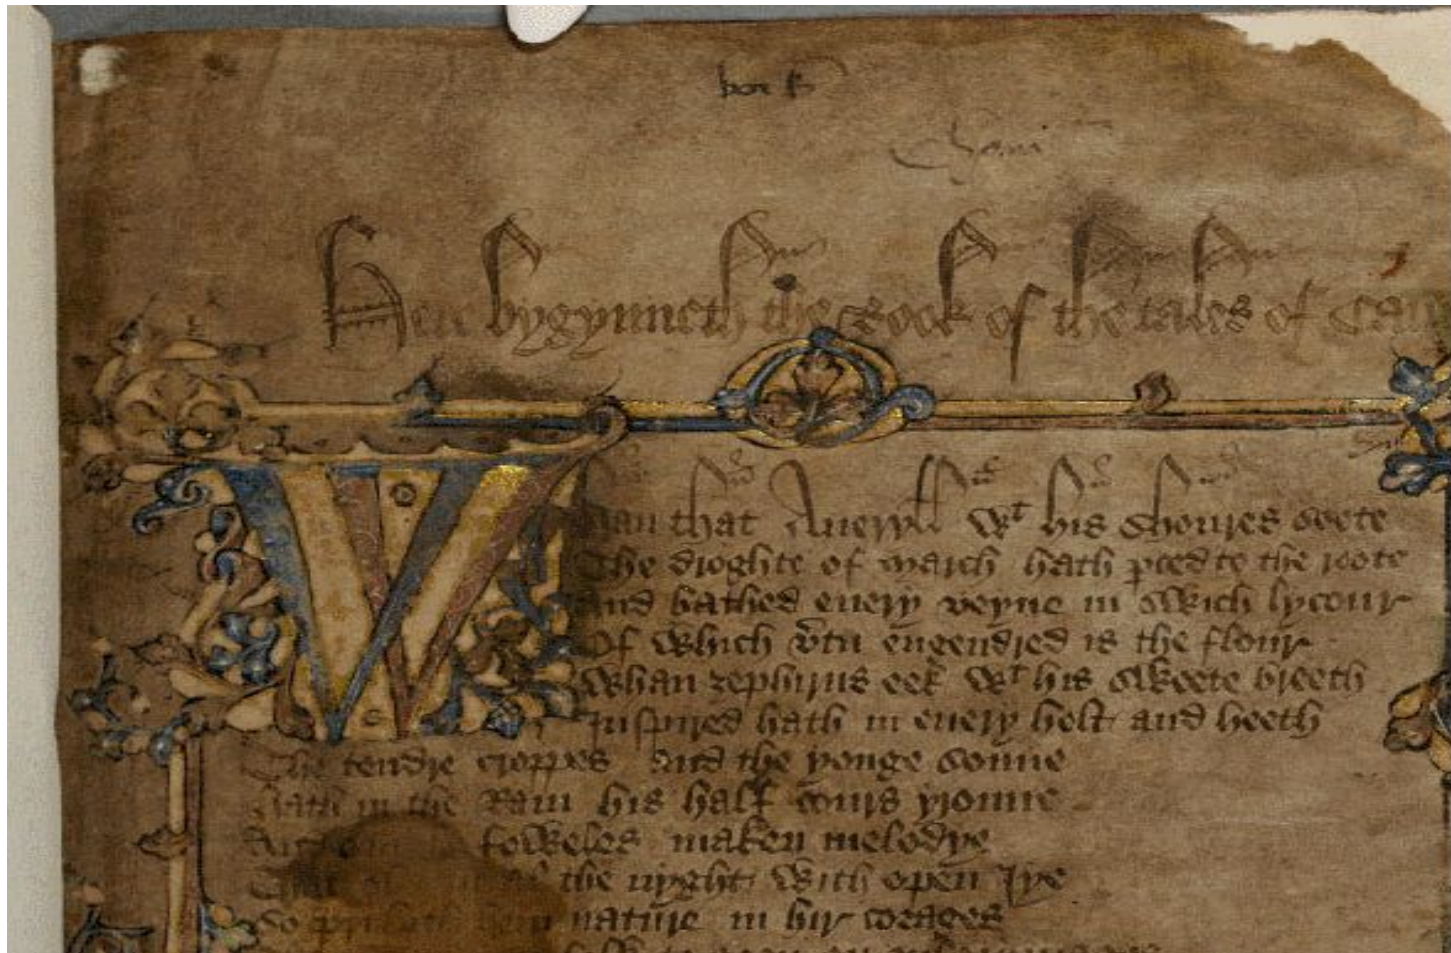 Here bygynneth the Book of the tales of Caun
Whan that Aueryłł wt his shoures soote
The droghte of march hath ꝑced to the roote
And bathed euery veyne in swich lycour
Of which v̾tu engendred is the flour
Whan zephirus eek wt his swete breeth
Inspired hath in euery holt and heeth
The tendre croppes and the yonge sonne
hath in the Ram his half cours yronne
foweles maken melodye
the nyght with open Iye
So nature in hir corages